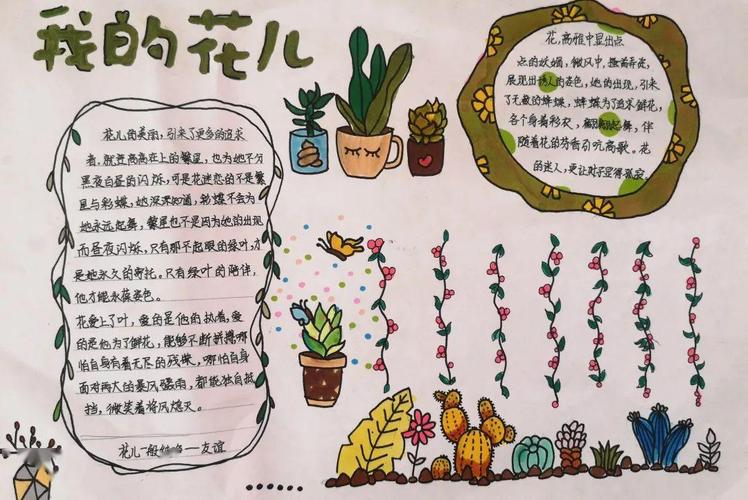 我的花儿
花儿的美丽，引来了更多的追求
者，就连高高在上的繁星，也为她不分
黑夜白昼的闪烁，可是花迷恋的不是繁
星与彩蝶，她深深知道，彩蝶不会为
她永远起舞，繁星也不是因为她的出现
而昼夜闪烁，只有那不起眼的绿叶，才
是她永久的寄托。只有绿叶的陪伴，
他才能永葆姿色。
花爱上了叶，爱的是他的执着，爱
的是他为了鲜花，能够不断拼搏哪
怕自身有着无尽的残缺，哪怕自身
面对两大的暴风骤雨，都能独自抵
挡，微笑着将风熄灭。
花儿一般 友谊
花，高雅中显出点
点的妖娆，微风中，搔首弄姿，
展现出诱人的姿色，她的出现，引来
了无数的蜂蝶，蜂蝶为了追求鲜花，
各个身着彩衣，翩翩起舞，伴
随着花的芬香引吭高歌。花
的迷人，更让对手显得孤寂。